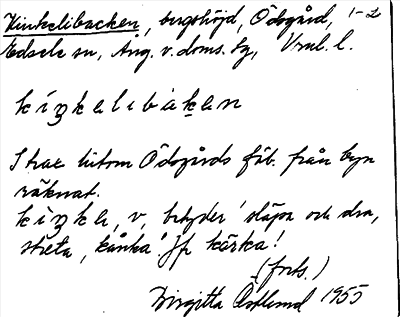 Kinkelibacken, bergshöjd, Ödsgård, 1-2
Edsele sn, Ång. v. doms. sg, Vrul. l.
kiŋkelibakan
Strax bitom Ödsgårds fäb. från byn
räknat.
kiŋka, v, betyder 'släpa och dra,
streta, kånka' jfr kärka!
(forts.)
Birgitta Östlund 1955